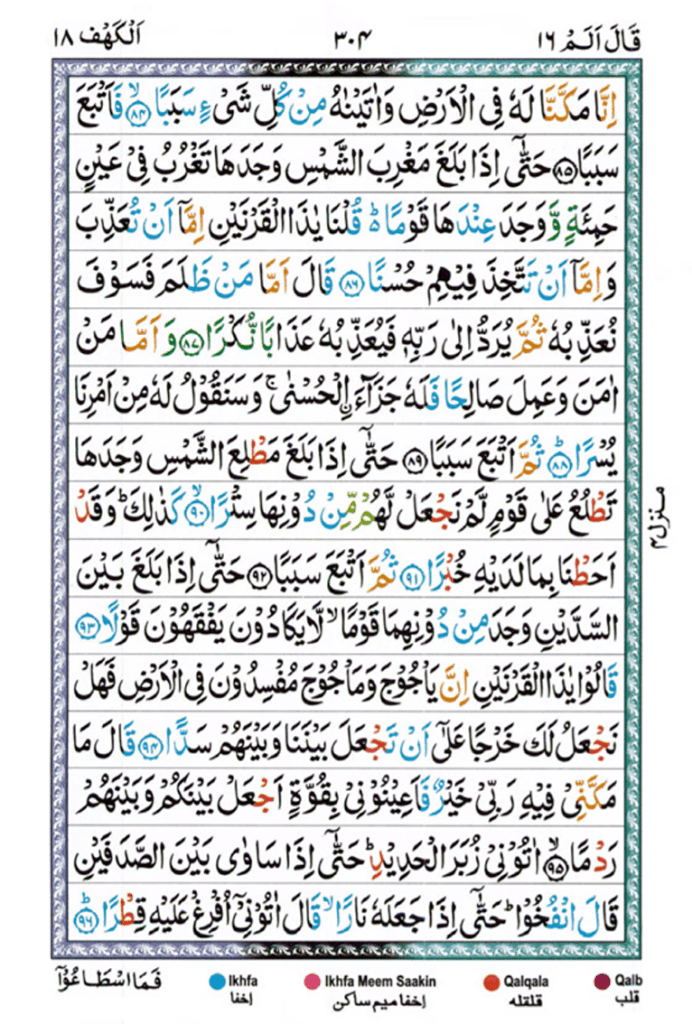 قَالَ اَلَمْ ١٦ ٣٠٤ اَلْكَهْف ١٨
اِنَّا مَكَّنَّا لَهٗ فِى الْاَرْضِ وَاٰتَيْنٰهُ مِنْ كُلِّ شَىْءٍ سَبَبًا ۙ‏﴿۸۴﴾ فَاَتْبَعَ
سَبَبًا‏﴿۸۵﴾ حَتّٰٓى اِذَا بَلَغَ مَغْرِبَ الشَّمْسِ وَجَدَهَا تَغْرُبُ فِىْ عَيْنٍ
حَمِئَةٍ وَّوَجَدَ عِنْدَهَا قَوْمًا ؕ قُلْنَا يٰذَا الْقَرْنَيْنِ اِمَّاۤ اَنْ تُعَذِّبَ
وَاِمَّاۤ اَنْ تَتَّخِذَ فِيْهِمْ حُسْنًا‏﴿۸۶﴾ قَالَ اَمَّا مَنْ ظَلَمَ فَسَوْفَ
نُعَذِّبُهٗ ثُمَّ يُرَدُّ اِلٰى رَبِّهٖ فَيُعَذِّبُهٗ عَذَابًا نُّكْرًا‏﴿۸۷﴾ وَاَمَّا مَنْ
اٰمَنَ وَعَمِلَ صَالِحًا فَلَهٗ جَزَآءَ ۨالْحُسْنٰى ۚ وَسَنَقُوْلُ لَهٗ مِنْ اَمْرِنَا
يُسْرًا ؕ‏﴿۸۸﴾ ثُمَّ اَتْبَعَ سَبَبًا‏﴿۸۹﴾ حَتّٰٓى اِذَا بَلَغَ مَطْلِعَ الشَّمْسِ وَجَدَهَا
تَطْلُعُ عَلٰى قَوْمٍ لَّمْ نَجْعَلْ لَّهُمْ مِّنْ دُوْنِهَا سِتْرًا ۙ‏﴿۹۰﴾ كَذٰلِكَ ؕ وَقَدْ
اَحَطْنَا بِمَا لَدَيْهِ خُبْرًا‏﴿۹۱﴾ ثُمَّ اَتْبَعَ سَبَبًا‏﴿۹۲﴾ حَتّٰٓى اِذَا بَلَغَ بَيْنَ
السَّدَّيْنِ وَجَدَ مِنْ دُوْنِهِمَا قَوْمًا ۙ لَّا يَكَادُوْنَ يَفْقَهُوْنَ قَوْلًا‏﴿۹۳﴾
قَالُوْا يٰذَا الْقَرْنَيْنِ اِنَّ يَاْجُوْجَ وَمَاْجُوْجَ مُفْسِدُوْنَ فِى الْاَرْضِ فَهَلْ
نَجْعَلُ لَكَ خَرْجًا عَلٰٓى اَنْ تَجْعَلَ بَيْنَنَا وَبَيْنَهُمْ سَدًّا‏﴿۹۴﴾ قَالَ مَا
مَكَّنِّىْ فِيْهِ رَبِّىْ خَيْرٌ فَاَعِيْنُوْنِىْ بِقُوَّةٍ اَجْعَلْ بَيْنَكُمْ وَبَيْنَهُمْ
رَدْمًا ۙ‏﴿۹۵﴾ اٰتُوْنِىْ زُبَرَ الْحَدِيْدِ ؕ حَتّٰٓى اِذَا سَاوٰى بَيْنَ الصَّدَفَيْنِ
قَالَ انْفُخُوْا ؕ حَتّٰٓى اِذَا جَعَلَهٗ نَارًا ۙ قَالَ اٰتُوْنِىْۤ اُفْرِغْ عَلَيْهِ قِطْرًا ؕ‏﴿۹۶﴾
منزل۴
فَمَا اسْطَاعُوْۤا
Ikhfa اِخفا
Ikhfa Meem Saakin اِخفا میم ساکن
Qalqala قلقله
Qalb قلب